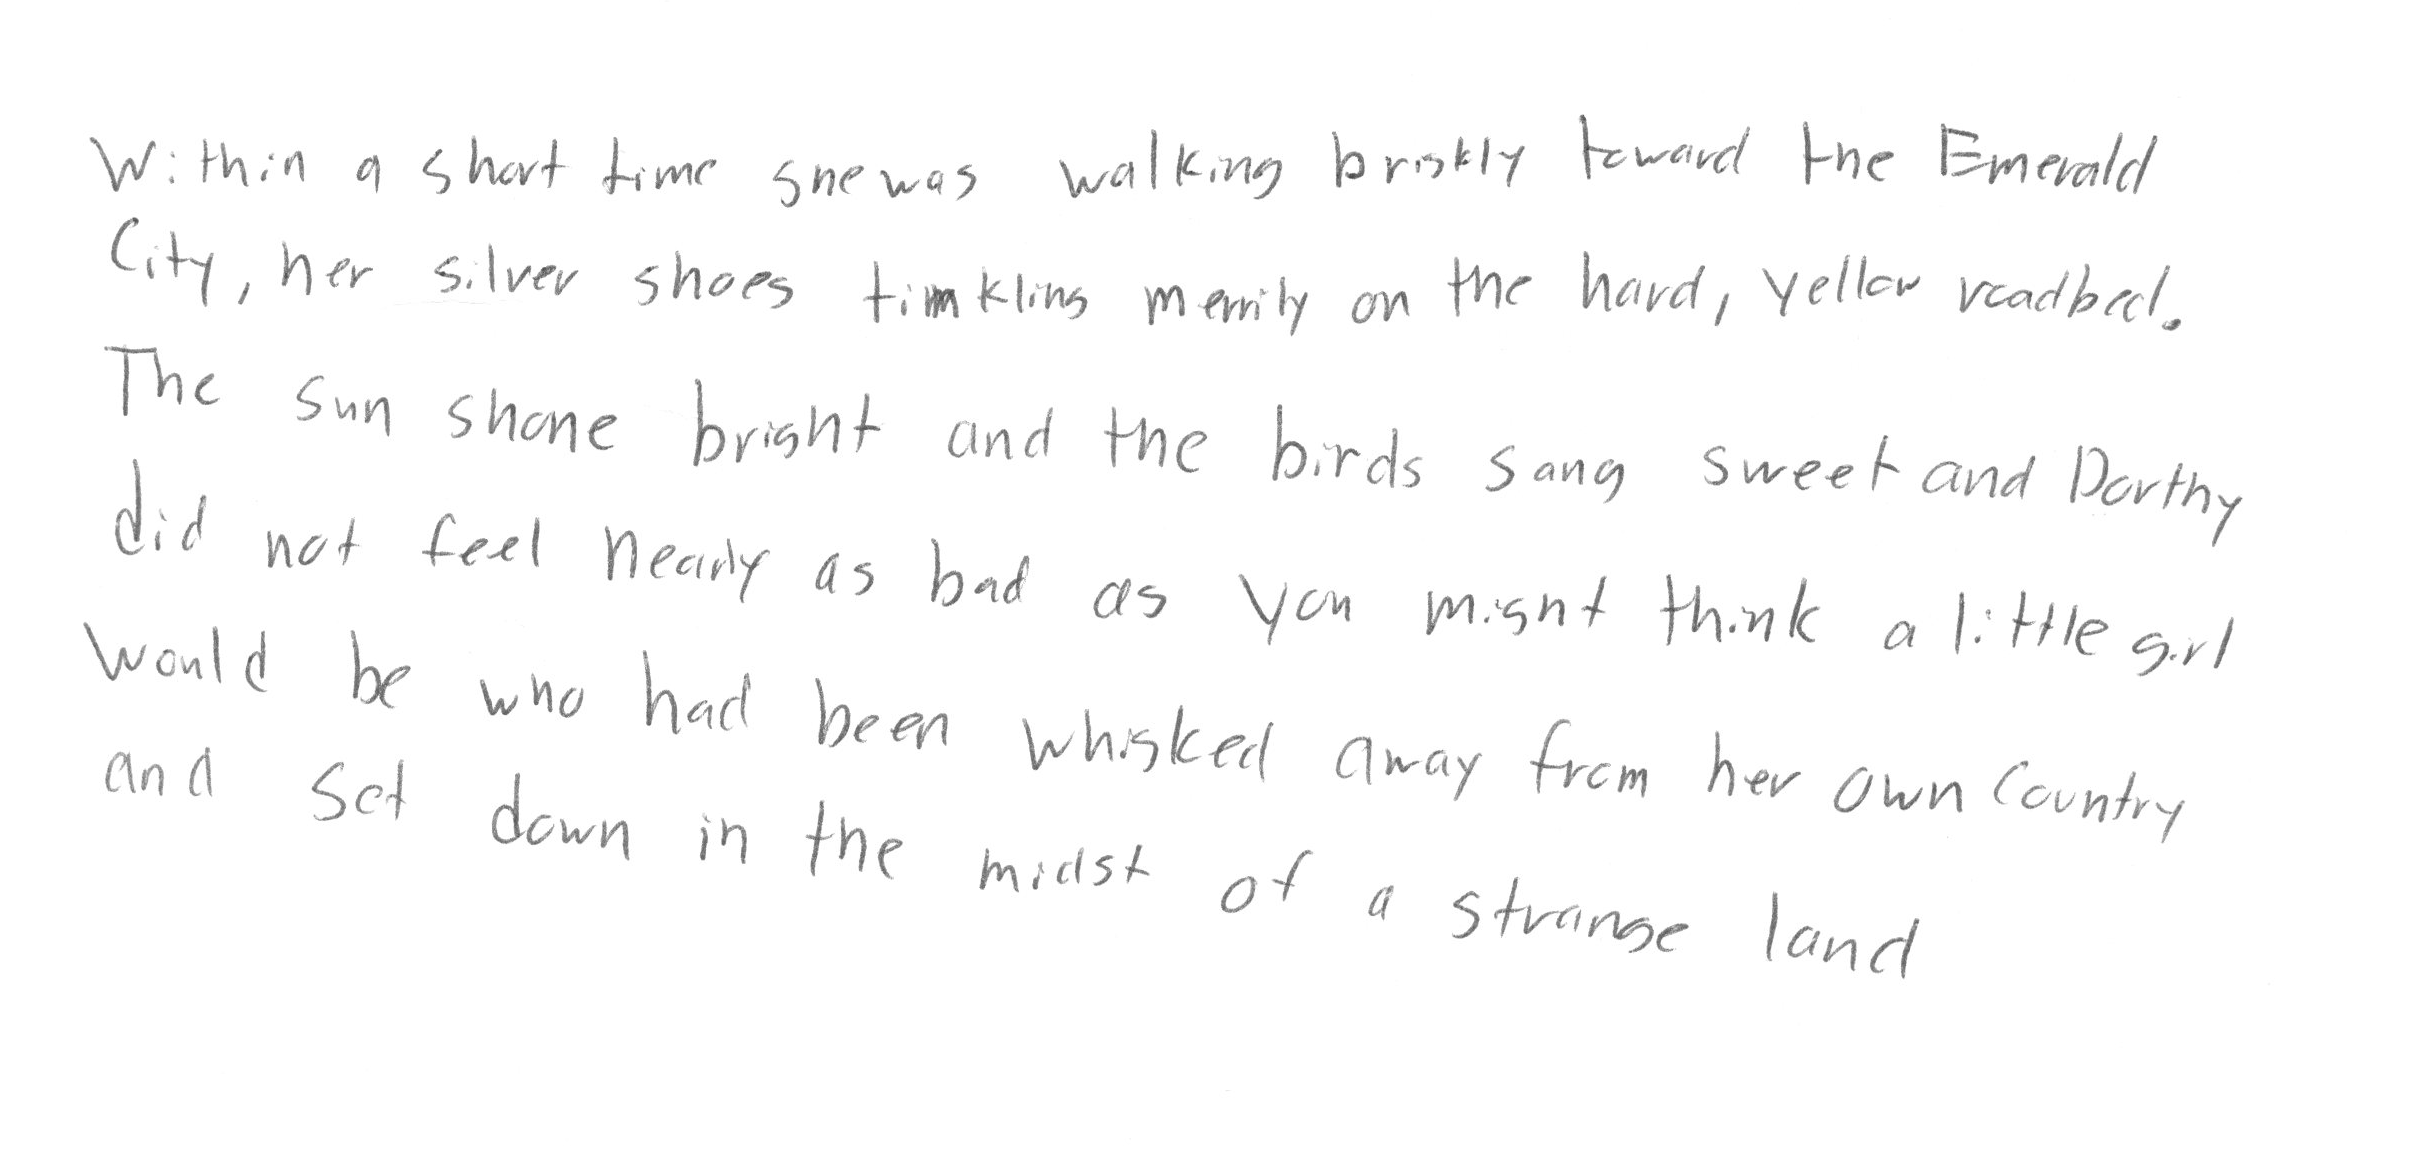 Within a short time she was walking briskly toward the Emerald
City, her silver shoes timkling merrily on the hard, yellow roadbed.
The sun shone bright and the birds sang sweet and Dorthy
did not feel nearly as bad as you might think a little girl
would be who had been whisked away from her own country
and set down in the midst of a strange land